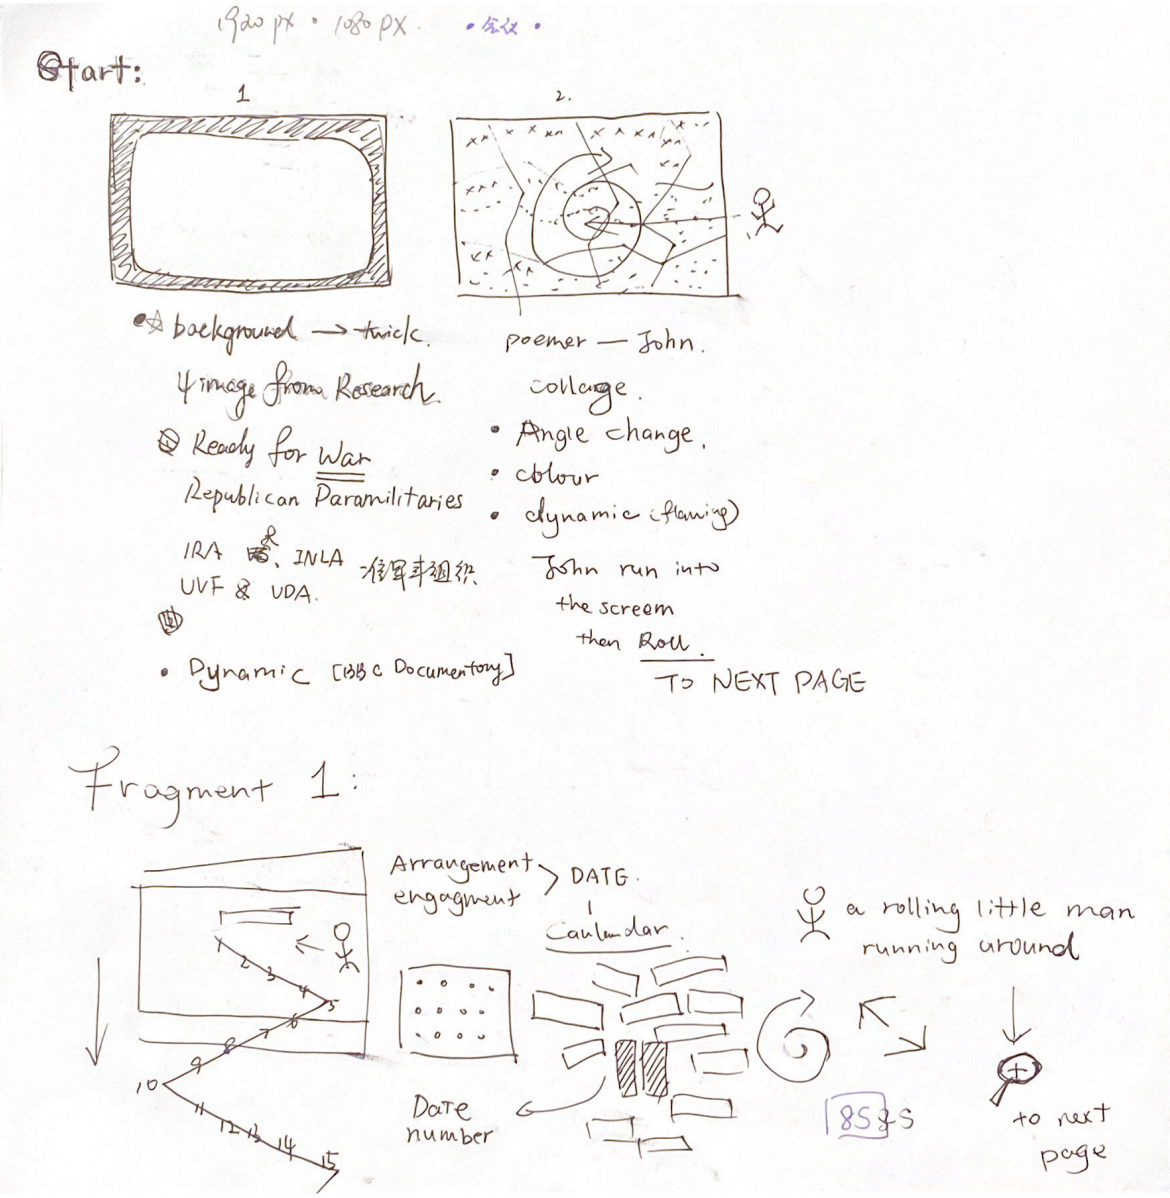 1920 px · 1080 px. · 会议 ·
Start:
1
2.
background → twick.
4 image from a Research.
Ready for War
Republican Paramilitaries
IRA & INLA 准军事组织
UVF & UDA.
• Dynamic [BBC Documentory]
poemer — John.
collarge.
• Angle change.
• colour
• dynamic (flawing)
John run into
the screem
then Roll.
TO NEXT PAGE
Fragment 1:
Arrangement
engagment > DATE.
Caulendar.
1 2 3 4 5 6 7 8 9 10 11 12 13 14 15
Date
number
a rolling little man
running around
85
to next
page